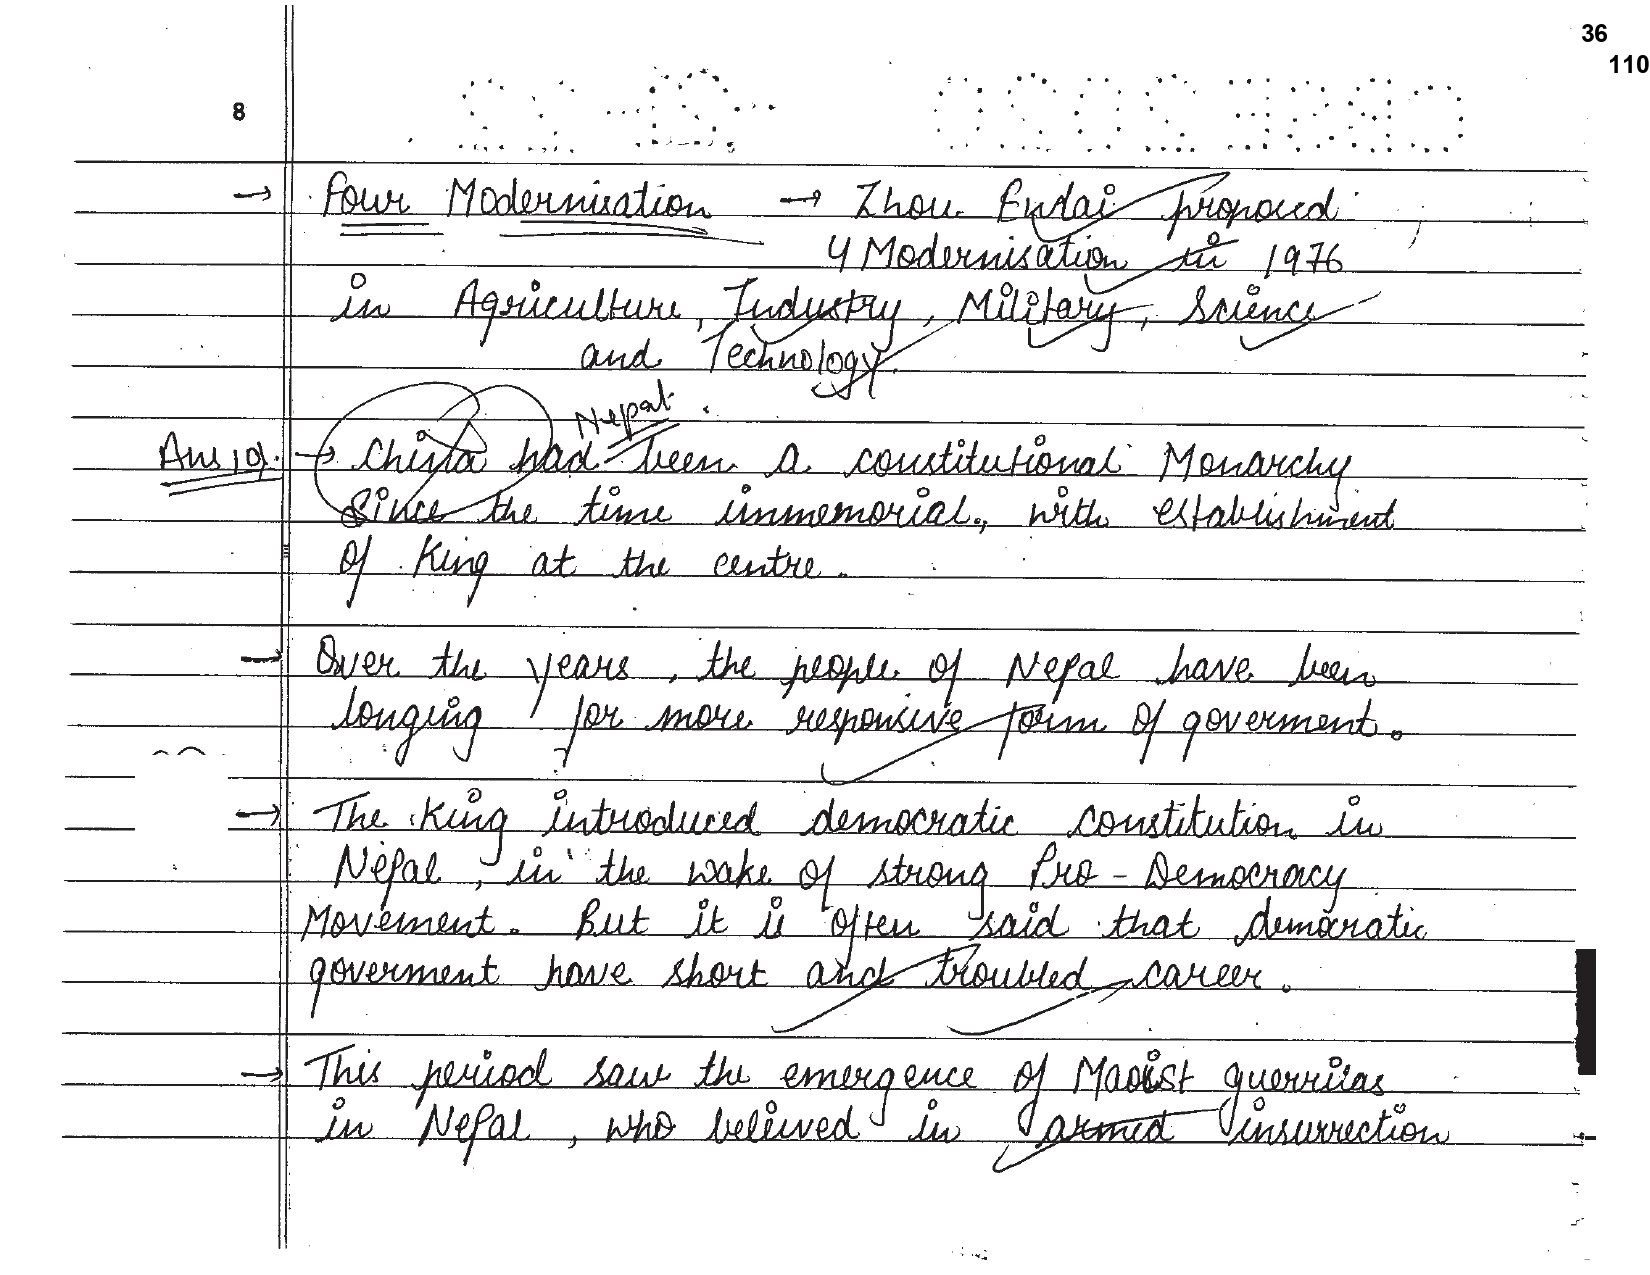 36
110
8
→ Four Modernisation → Zhou Enlai proposed
4 Modernisation in 1976
in Agriculture, Industry, Military, Science
and Technology.
Nepal.
Ans 19. → China had been a constitutional Monarchy
since the time immemorial, with establishment
of King at the centre.
→ Over the years, the people of Nepal have been
longing for more responsive form of goverment.
→ The King introduced democratic constitution in
Nepal, in the wake of strong Pro-Democracy
Movement. But it is often said that democratic
goverment have short and troubled career.
→ This period saw the emergence of Maoist guerrilas
in Nepal, who beleived in armed insurrection